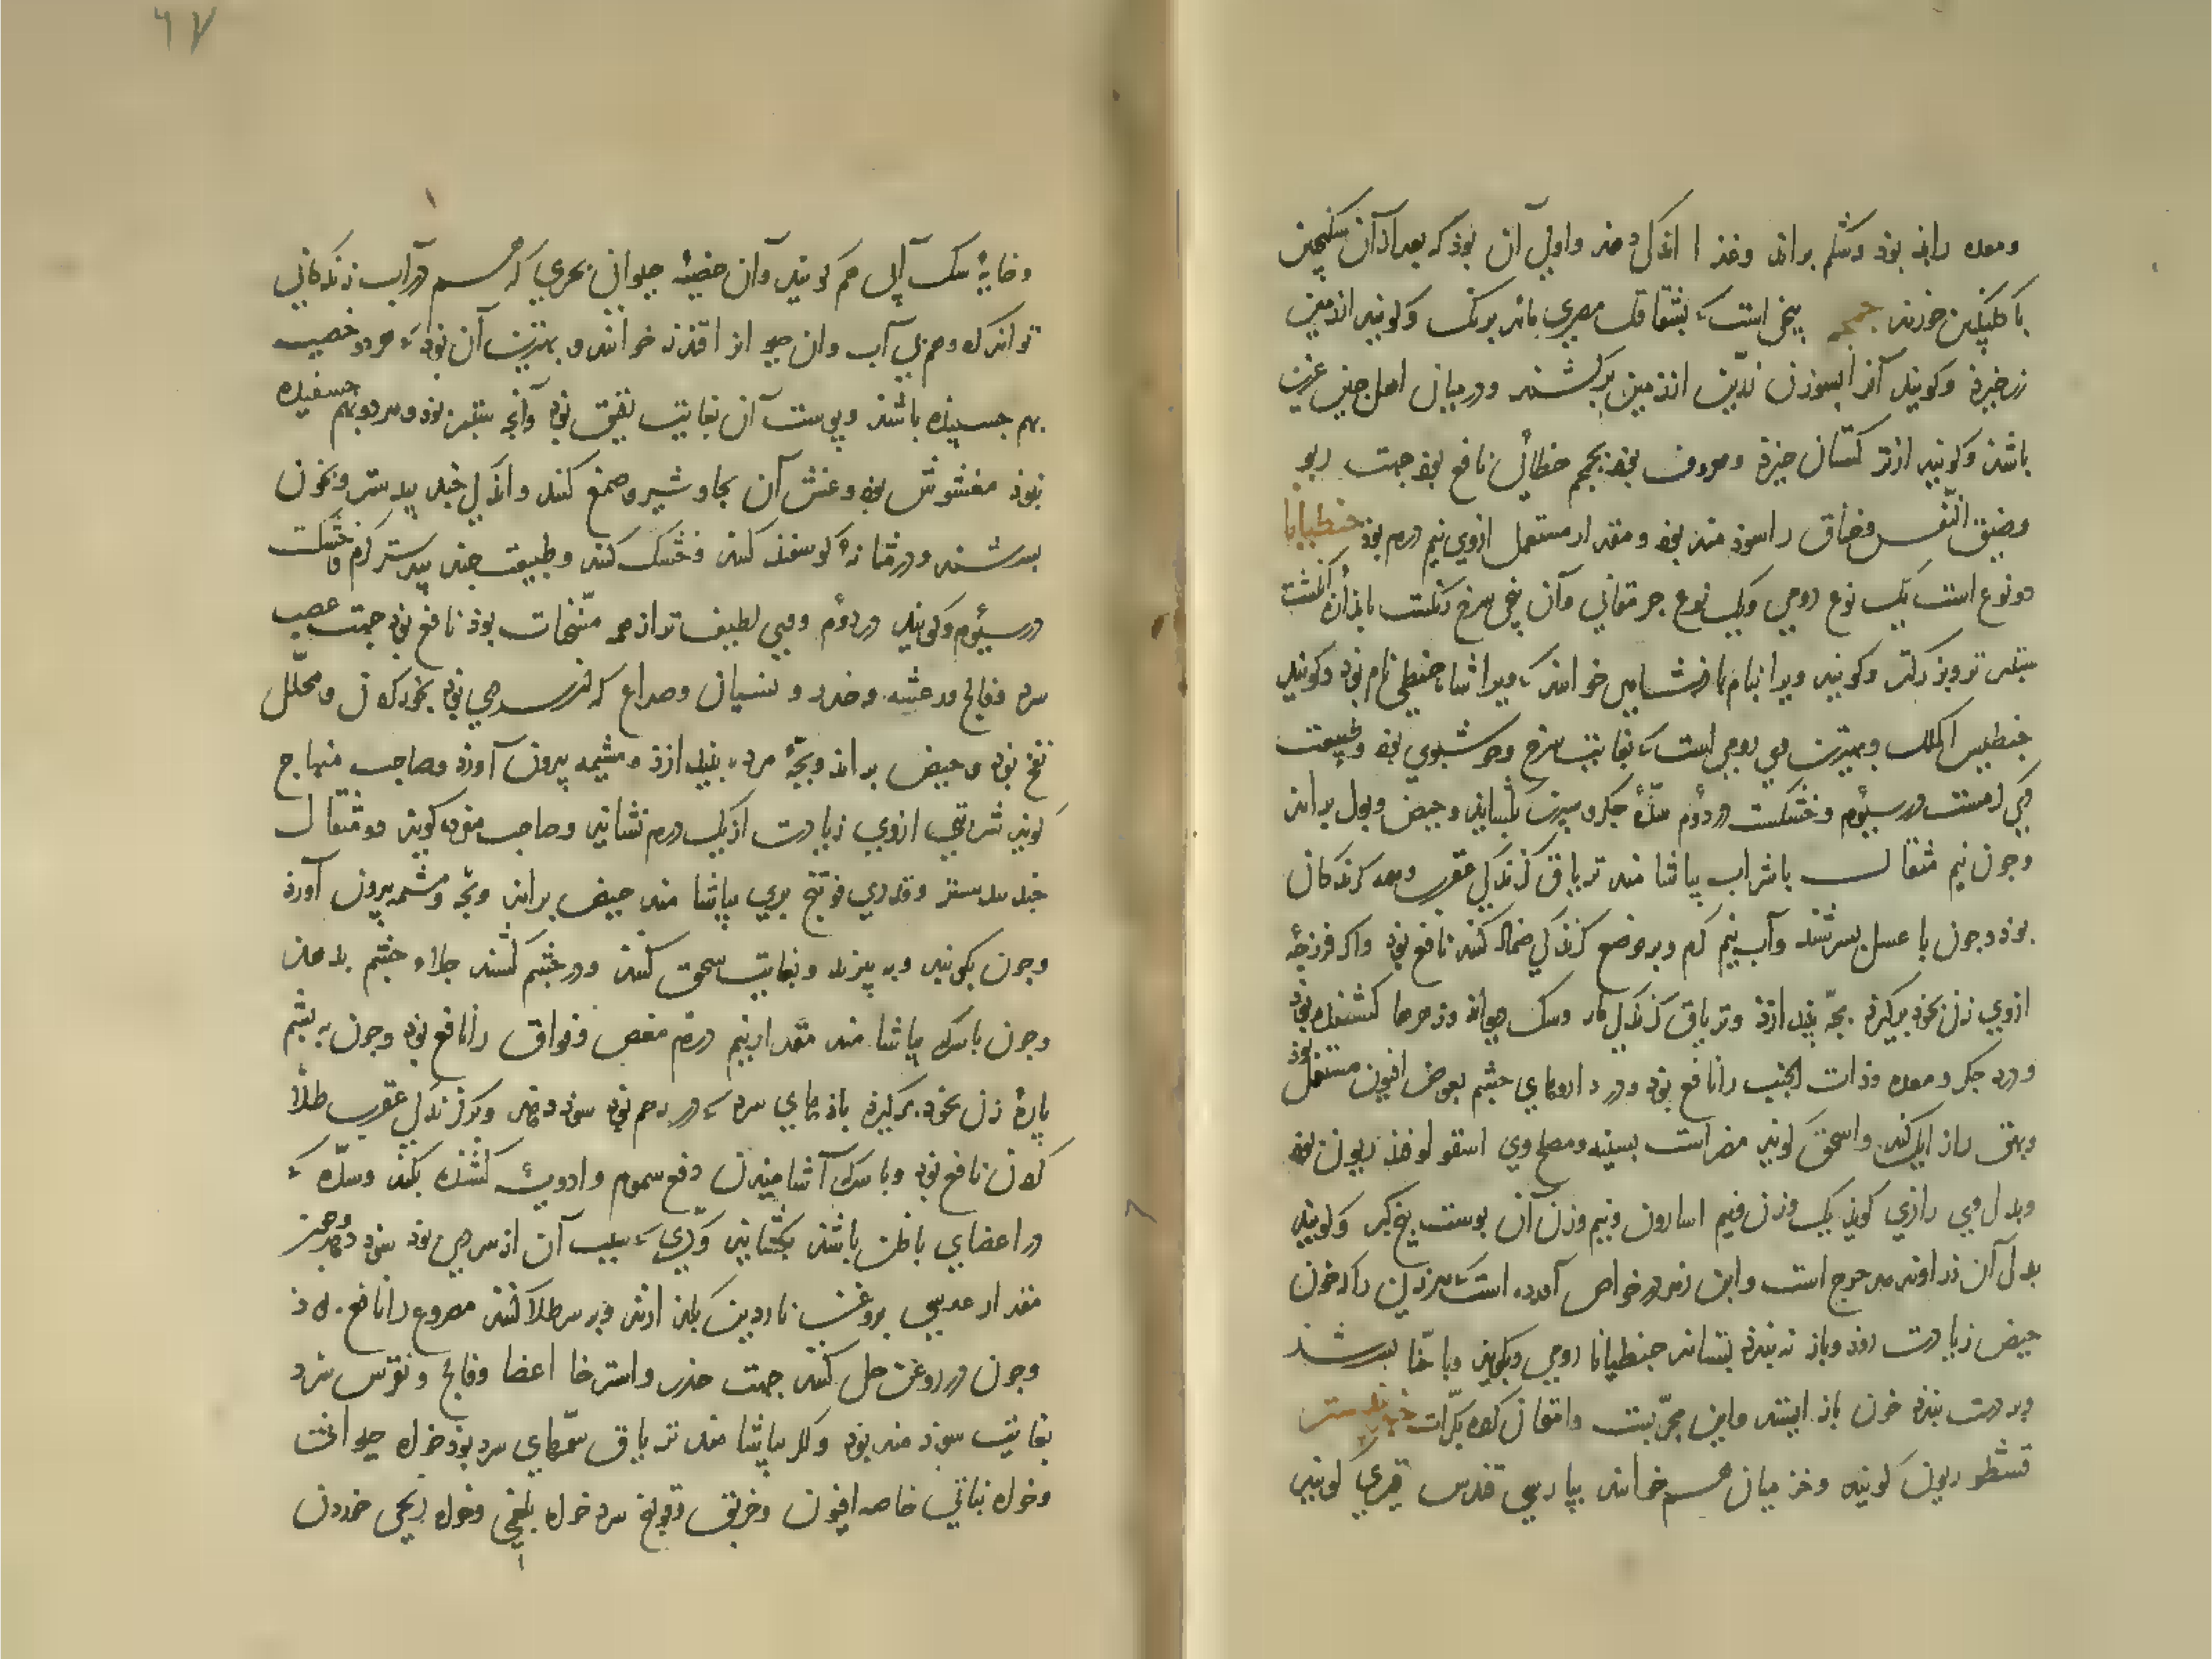 ومعده را بد بود و شکم براند و غذا اندکی دهد و اولی آن بود که بعد از آن سکنجبین
با خورند جمجمه بیخی است که بشقاقل مصری ماند برنک و کویند از زمین
خیزد و کویند آنرا بسوزن زرّین از زمین برکشند و در میان اهل چین عزیز
باشد و کویند از ترکستان خیزد و معروف بود بجمجم خطائی نافع بود جهت ربو
و ضیق النّفس و خناق را سود مند بود و مقدار مستعمل ازوی نیم درم بود جنطیانا
دو نوع است یک نوع رومی و یک نوع جرمقانی و آن بیخی سرخ رنکست باندازه انکشت
ستبر تر و بزرکتر و کویند ویرا بنام خوانند که ویرا جنطی نام بود و کویند
جنطیس الملک و بهترین وی رومی است که بغایت سرخ و خوشبوی بود و طبیعت
وی کرمست در سیوم و خشکست در دوم سدّهٔ جکر و سپرز بکشاید و حیض و بول براند
و چون نیم مثقال با شراب بیاشامند تریاق کزندکی عقرب و همه کزندکان
بود و چون با عسل بسرشند و آب نیم کرم و بر موضع کزندکی ضماد کنند نافع بود و اکر فرزجهٔ
ازوی زن بخود برکیرد بچّه بیندازد و تریاق کزندکی مار و سک دیوانه و زهرها کشنده بود
و درد جکر و معده و ذات الجنب را نافع بود و در داروهای چشم بعوض افیون مستعمل بود
و بهق را زایل کند و اسحق کوید مضر است بسینه و مصلح وی اسقولوقندریون بود
و بدل وی رازی کوید یک وزن و نیم اسارون و نیم وزن آن پوست بیخ کبر و کویند
بدل آن زراوند مدحرج است و ابن زهر در خواص آورده است که هر زن را که خون
حیض زیادت رود و باز نه بندد بستاند جنطیانا رومی و بکوبد و با حنّا بسرشد
و بر دست بندد خون باز ایستد و این مجرّبست و امتحان کرده بکرّات جندبیدستر
قسطوریون کویند و خزمیان هم خوانند بپارسی قندس قیری کویند
و خایهٔ سک آبی هم کویند و آن خصیهٔ حیوانی بحریست که هم در آب زندکانی
تواند کرد و هم بی آب و آن حیوانرا قندز خوانند و بهترین آن بود که هر دو خصیه
بهم چسبیده باشد و پوست آن بغایت رقیق بود و آنچه ستبر بود و هر دو بهم چسفیده
نبود مغشوش بود و غش آن بجاوشیر و صمغ کنند و اندکی جندبیدستر و بخون
بسرشند و در مثانهٔ کوسفند کنند و خشک کنند و طبیعت جندبیدستر کرم و خشکست
در سیوم و کویند در دوم و وی لطیف تر از همه مسخنات بود نافع بود جهت عصب
سرد و فالج و رعشه و خدر و نسیان و صداع که از سردی بود بخور کردن و محلّل
نفخ بود و حیض براند و بچّهٔ مرده بیندازد و مشیمه بیرون آورد و صاحب منهاج
کوید شربتی ازوی زیادت از یک درم نشاید و صاحب مفرده کوید دو مثقال
جندبیدستر و قدری فوتنج بری بیاشامند حیض براند و بچّه و مشیمه بیرون آورد
و چون بکوبند و بپزند و بغایت سحق کنند و در چشم کشند جلاء چشم بدهد
و چون با سرکه بیاشامند مقدار نیم درم مغص و فواق را نافع بود و چون به پشم
پارهٔ زن بخود برکیرد بادهای سرد که در رحم بود سود دهد و بر کزندکی عقرب طلا
کردن نافع بود و با سرکه آشامیدن دفع سموم و ادویهٔ کشنده بکند و سدّه که
در اعضای باطن باشد بکشاید و کرّی که سبب آن از سردی بود سود دهد و چون
مقدار عدسی بروغن ناردین بکدازند و بر سر طلا کنند مصروع را نافع بود
و چون در روغن حل کنند جهت خدر و استرخا اعضا و فالج و نقرس سرد
بغایت سود مند بود و اکر بیاشامند تریاق سمّهای سرد بود خواه حیوانی
و خواه نباتی خاصه افیون و خربق و قولنج سرد خواه بلغمی و خواه ریحی خوردن